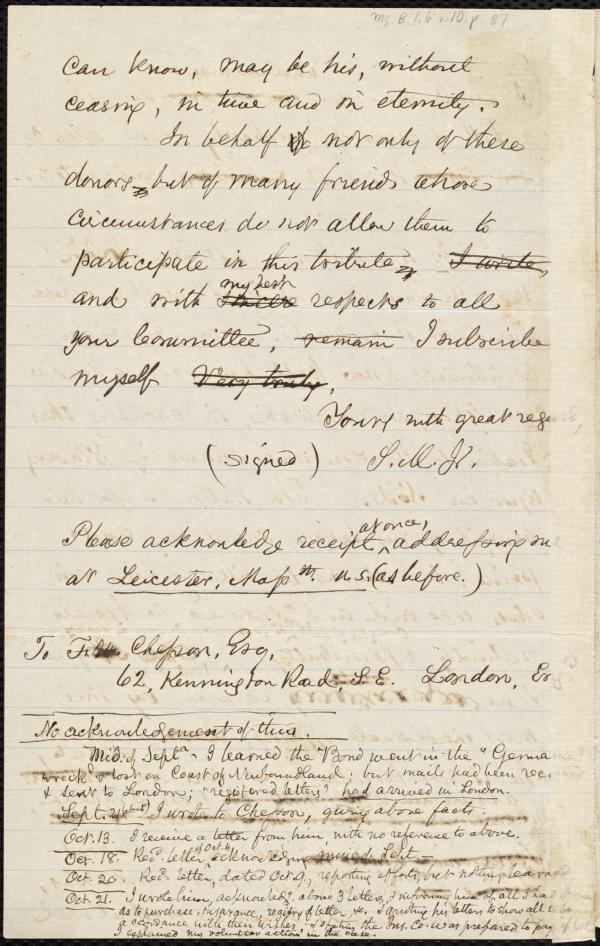 Ms. B. 1. 6 v. 10. p. 87
can know, may be his, without
ceasing, in time and in eternity.
In behalf not only of these
donors, but of many friends whose
circumstances do not allow them to
participate in this tribute, I write,
my best
and with sincere respects to all
your Committee, remain I subscribe
myself Very truly,
Yours with great reg
(signed) S. M. Jr.
at once,
Please acknowledge receipt, addressing
at Leicester, Mass. U.S. (as before.)
To F. W. Chesson, Esq,
62, Kennington Road, S. E. London,
No acknowledgement of this.
Mid. of Septr. - I learned the Bond went in the "Germa
wreck'd & lost on Coast of Newfoundland; but mails had been rec.
& sent to London; "registered letters" had arrived in London.
Sept. I wrote to Chesson, giving above facts.
Oct. 13. I receive a letter from him, with no reference to above.
of Oct. 4,
Oct. 18. Recd. letter, Sept.
Oct. 20. Recd. letter, dated Oct. 9, reporting efforts, but nothing learned
Oct. 21. I wrote him, acknowledg. above 3 letters, & informing him of all I had
as to purchase, insurance, registry of letter, &c. his letters to show all
accordance with their wishes. the Ins. Co. was prepared to pay
I explained my volunteer action in the case.